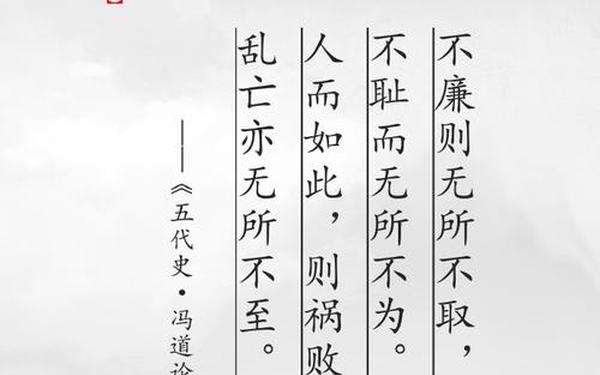 不廉则无所不取，
不耻而无所不为。
人而如此，则祸败
乱亡亦无所不至。
——《五代史·冯道论